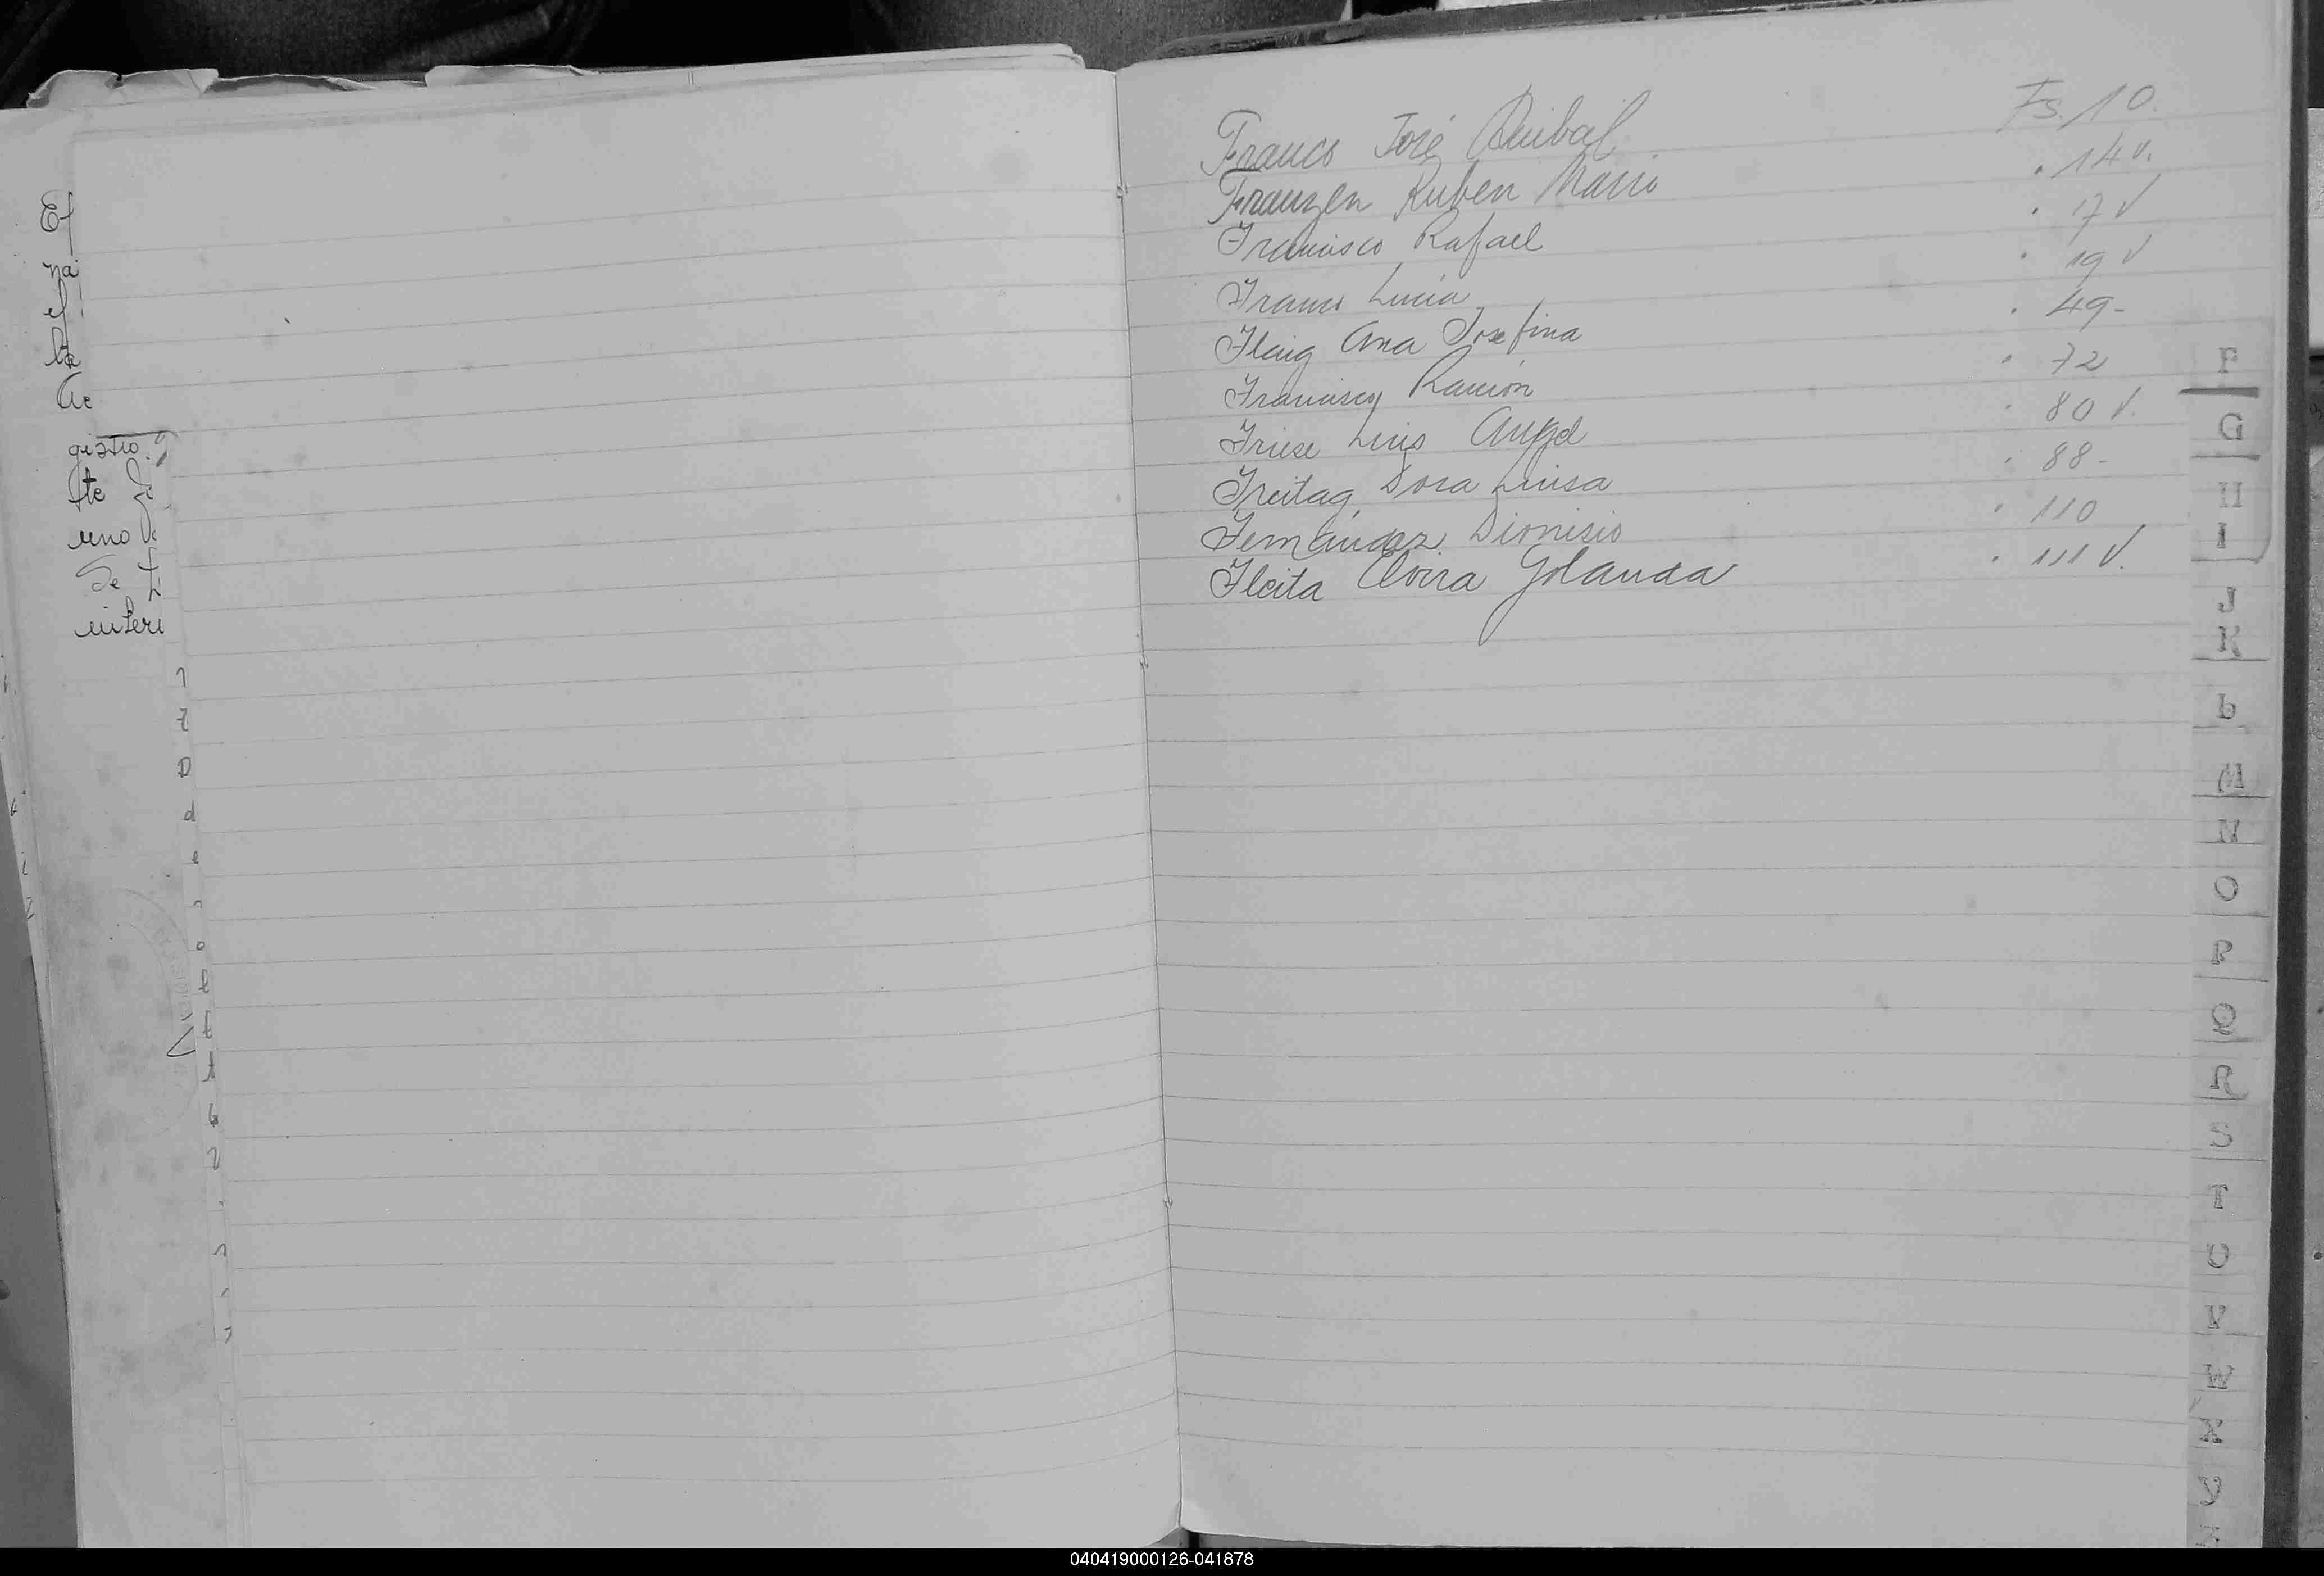 Ef
na
el
la
Ac
gistro
te
uno
Se
miteri
Franco José Anibal Fs. 10.
Franzen Ruben Mario . 14 v.
Francisco Rafael . 17 v
Franco Lucía . 19 v
Flaig Ana Josefina . 49-
Francisco Ramón . 72
Friese Luis Angel . 80 v.
Freitag Dora Luisa . 88-
Fernández Dionisio . 110
Fleita Elvira Yolanda . 111 v.
F
G
H
I
J
K
L
M
N
O
P
Q
R
S
T
U
V
W
X
040419000126-041878